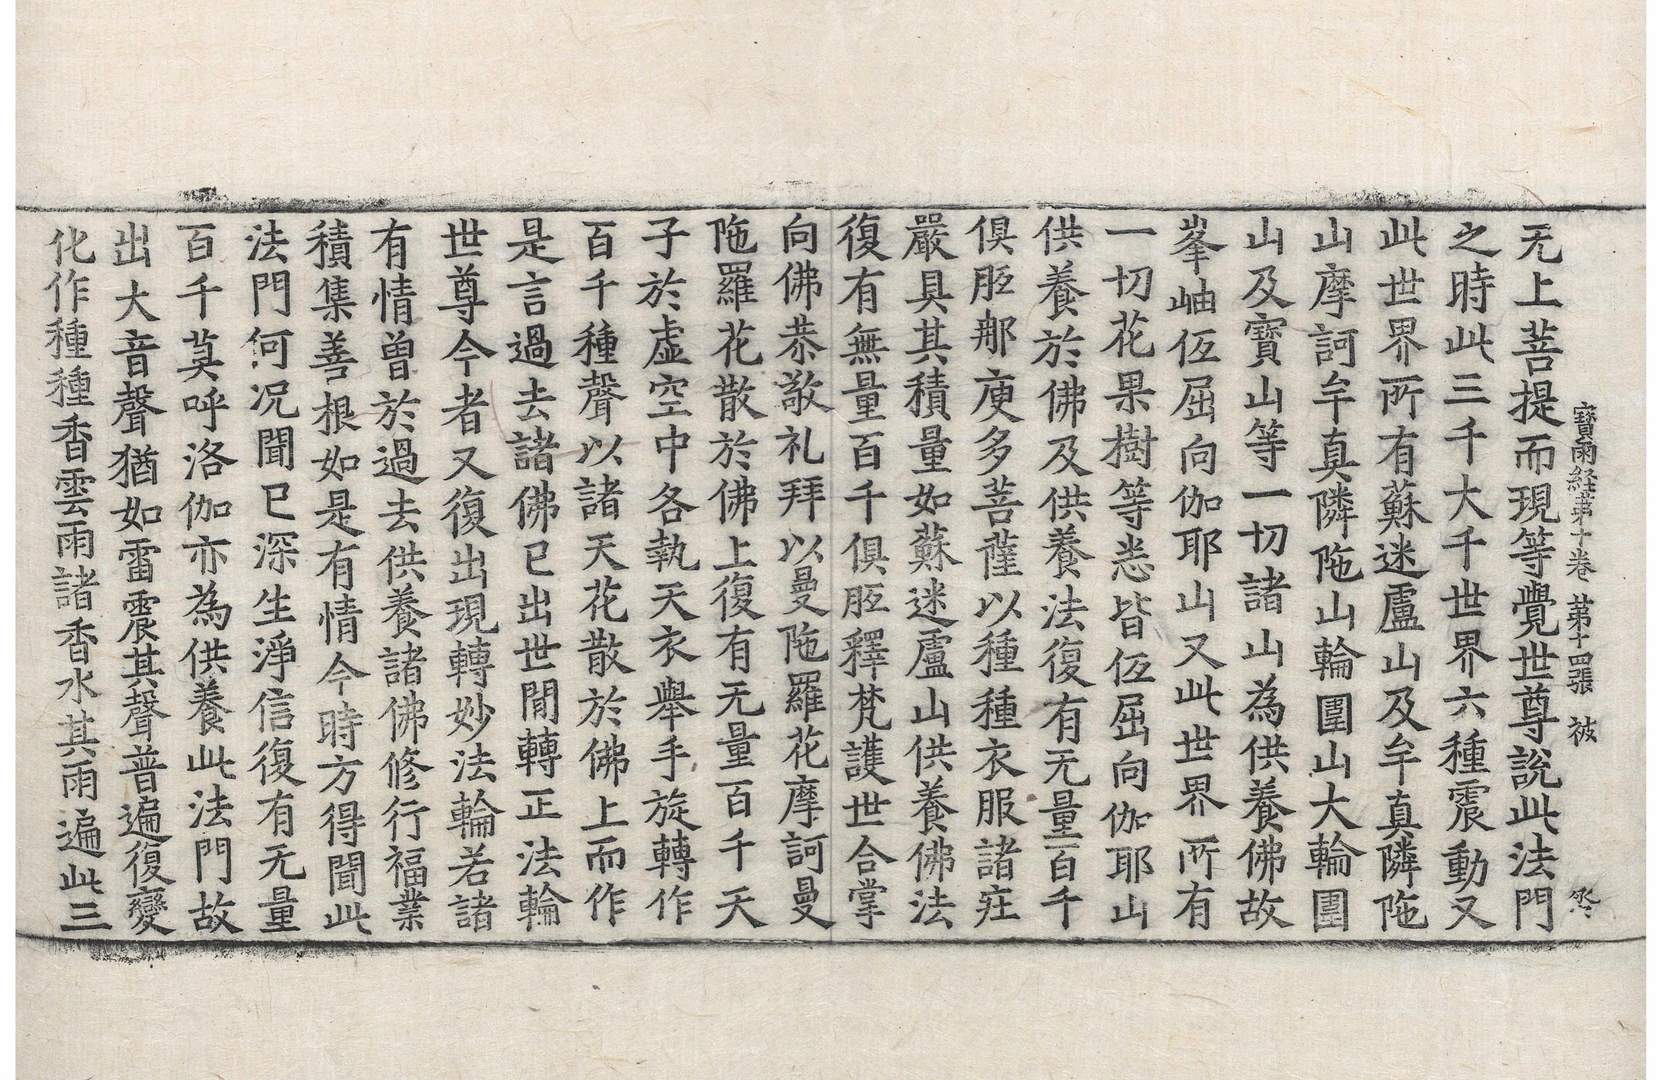 寳雨経苐十卷 苐十四張 被
无上菩提而現等覺世尊說此法門
之時此三千大千世界六種震動又
此世界所有蘇迷盧山及牟真隣陁
山摩訶牟真隣陁山輪圍山大輪圍
山及寶山等一切諸山為供養佛故
峯岫低屈向伽耶山又此世界所有
一切花果樹等悉皆低屈向伽耶山
供養於佛及供養法復有无量百千
俱胝那庾多菩薩以種種衣服諸莊
嚴具其積量如蘇迷盧山供養佛法
復有無量百千俱胝釋梵護世合掌
向佛恭敬礼拜以曼陁羅花摩訶曼
陁羅花散於佛上復有无量百千天
子於虚空中各執天衣舉手旋轉作
百千種聲以諸天花散於佛上而作
是言過去諸佛已出世閒轉正法輪
世尊今者又復出現轉妙法輪若諸
有情曾於過去供養諸佛修行福業
積集善根如是有情今時方得聞此
法門何况聞已深生淨信復有无量
百千莫呼洛伽亦為供養此法門故
出大音聲猶如雷震其聲普遍復變
化作種種香雲雨諸香水其雨遍此三